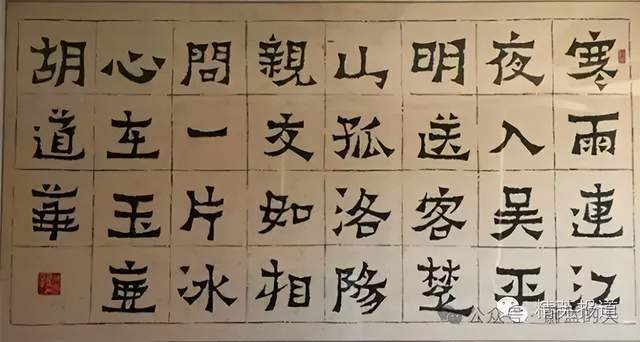 寒雨連江
夜入吳平
明送客楚
山孤洛陽
親友如相
問一片冰
心在玉壺
胡道華
公众号
报道